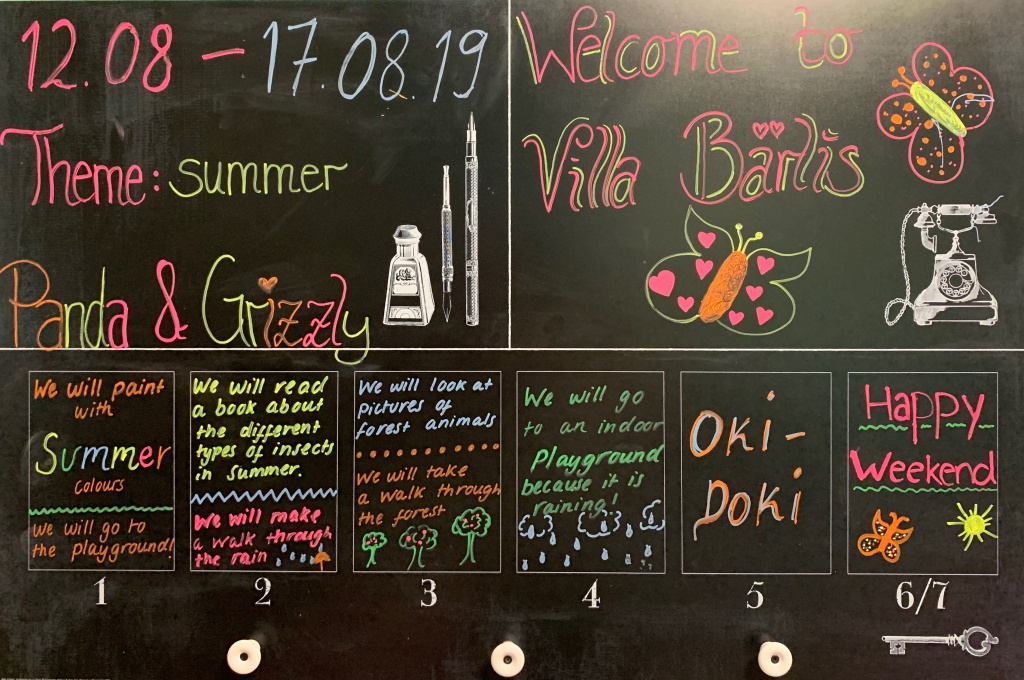 12.08 – 17.08.19
Theme: summer
Panda & Grizzly
Welcome to
Villa Bärlis
We will paint
with
Summer
colours
we will go to
the playground!
1
We will read
a book about
the different
types of insects
in summer.
We will make
a walk through
the rain
2
We will look at
pictures of
forest animals
We will take
a walk through
the forest
3
We will go
to an indoor
Playground
because it is
raining!
4
OKi-
DOKi
5
Happy
Weekend
6/7